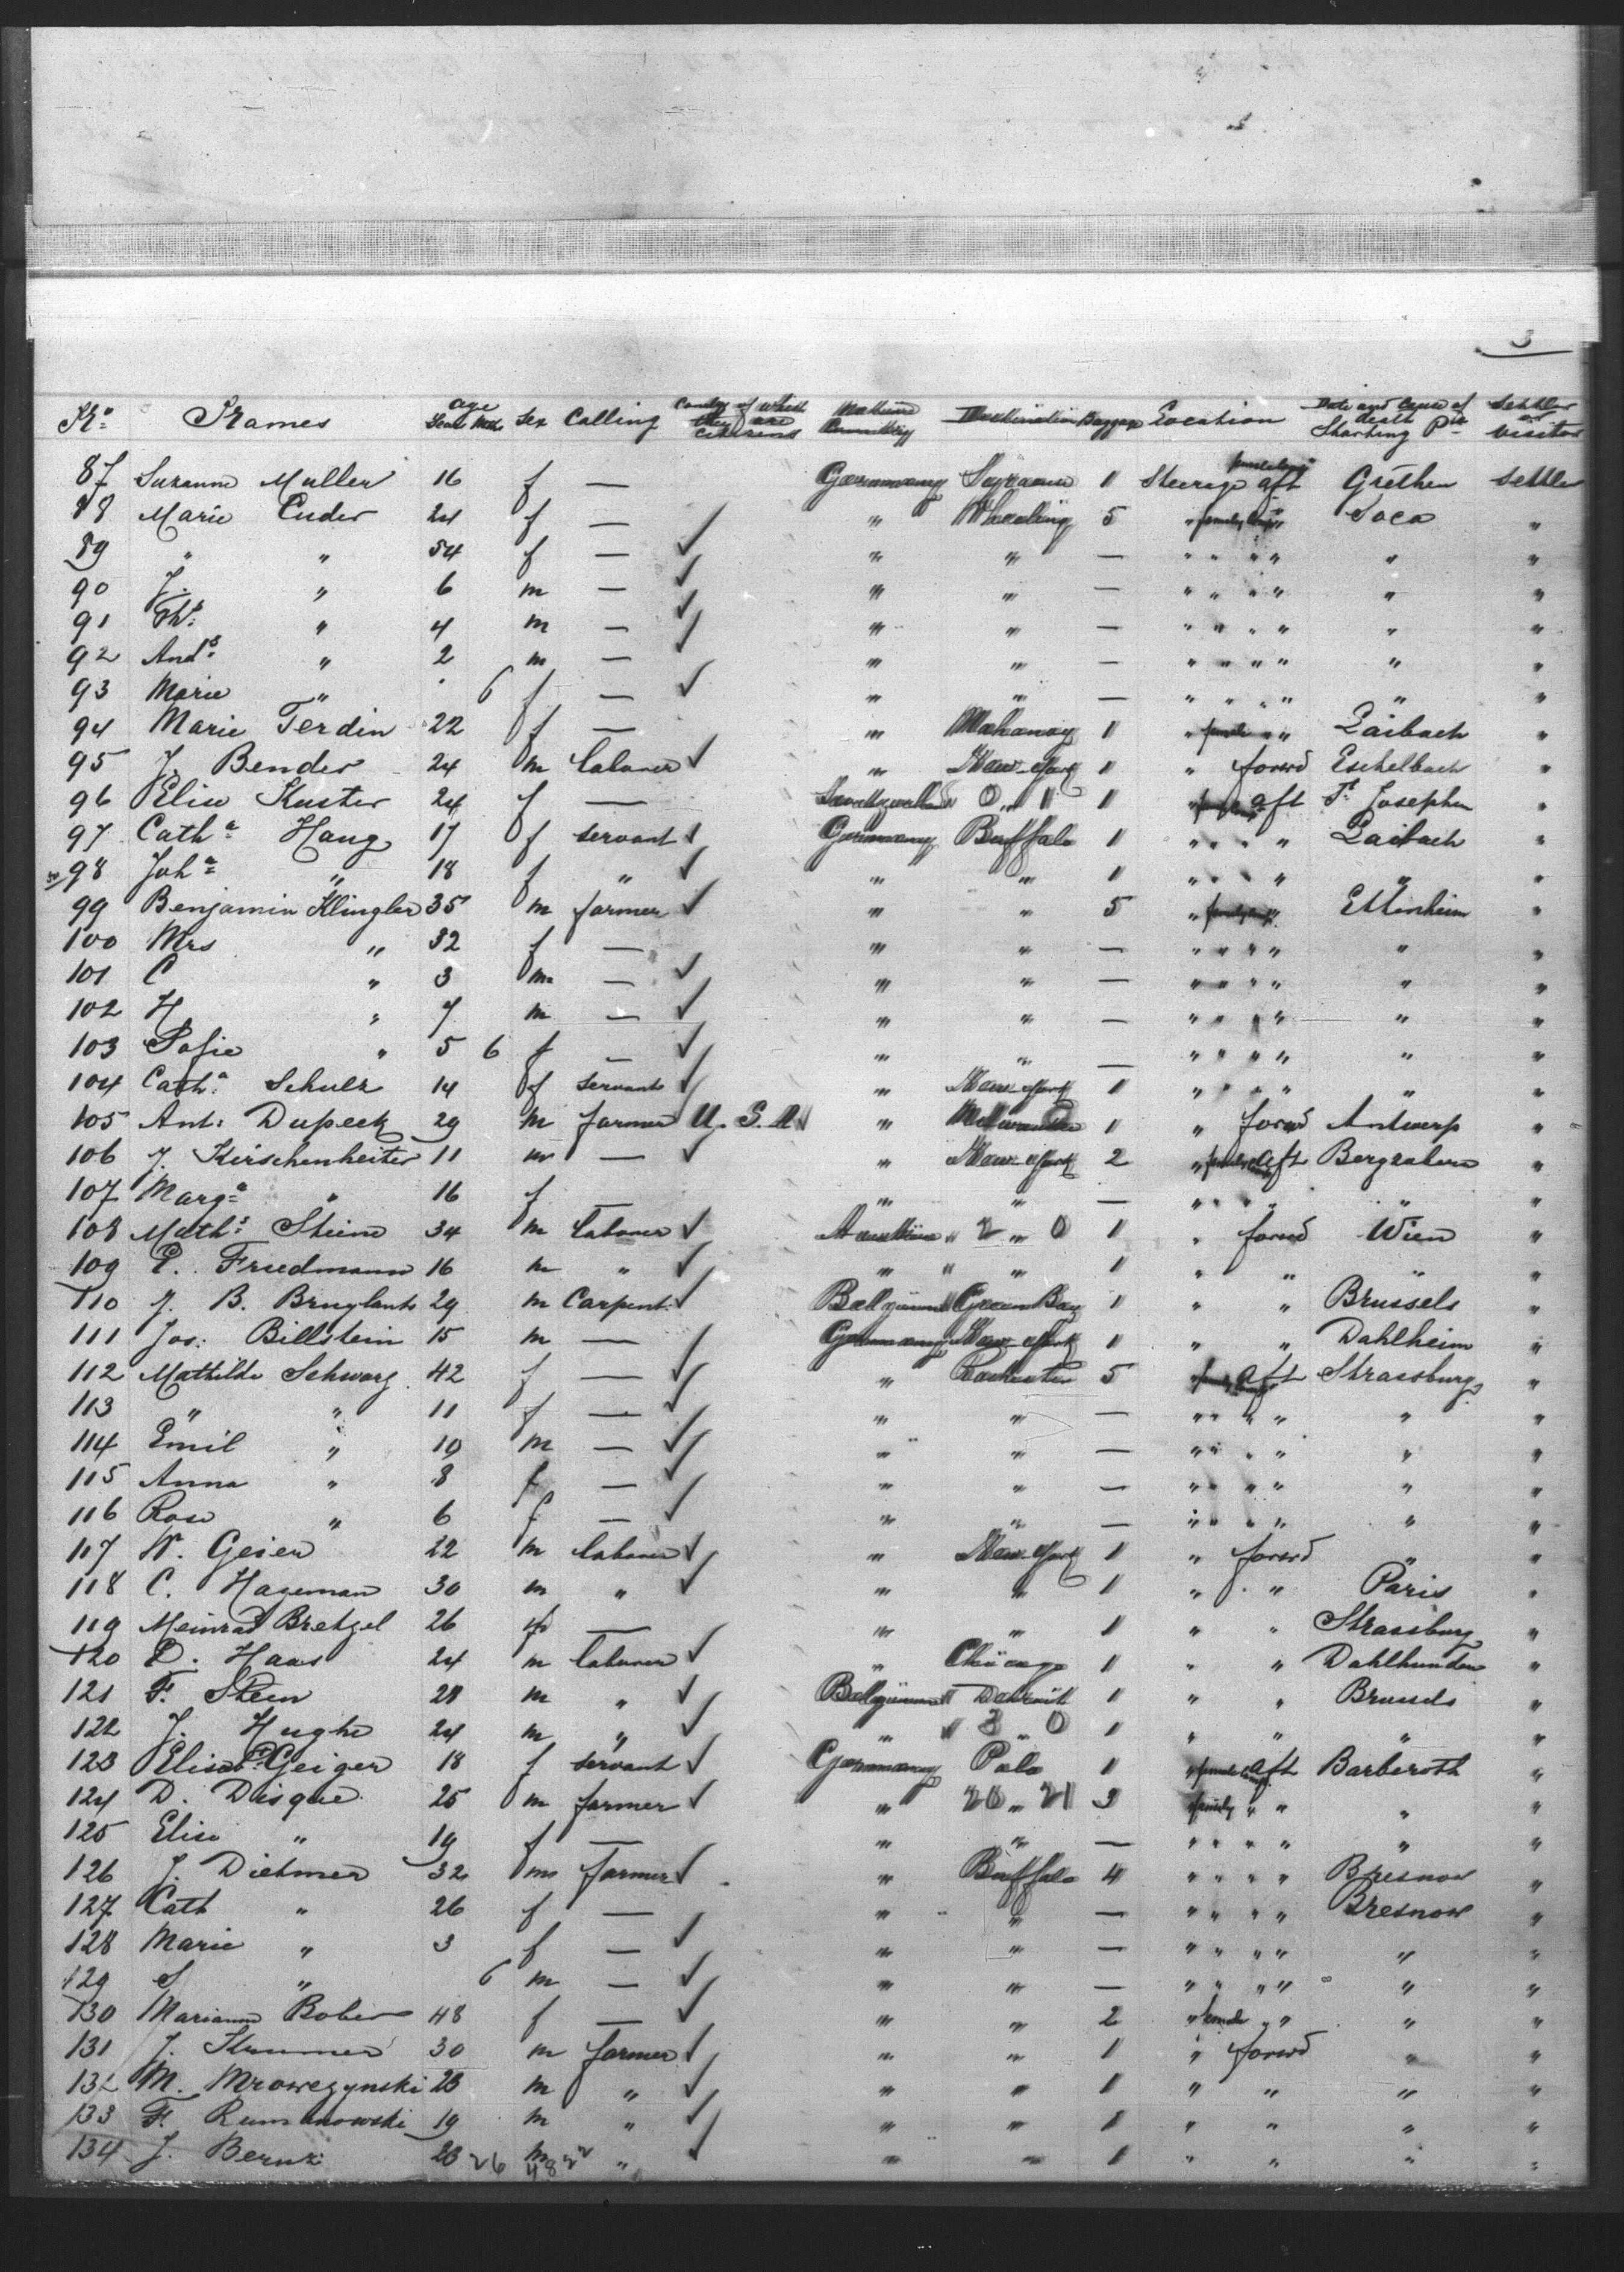 3
No. Names age Years Mth Sex Calling Country of which they are citizens Native Country Destination Baggage Location Date and Cause of death Starting Pts Settler or Visitor
87 Suzanne Muller 16 f — Germany 1 Steerage aft Grethen Settler
88 Marie Euder 24 f — ✓ " Wheeling 5 " family Soca "
89 " " 54 f — ✓ " " — " " " " " "
90 J. " 6 m — ✓ " " — " " " " " "
91 Ths. " 4 m — ✓ " " — " " " " " "
92 Ands. " 2 m — " " — " " " " " "
93 Marie " 6 f — ✓ " " — " " " " " "
94 Marie Terdin 22 f — " Mahanoy 1 " female " " Laibach "
95 J. Bender 24 m laborer ✓ " New-York 1 " forwd Eschelbach "
96 Elise Kuster 24 f — Switzerland 0 " 11 1 " aft St. Josephen "
97 Catha. Haug 17 f servant ✓ Germany Buffalo 1 " " " " Laibach "
98 Joha. " 18 f " ✓ " " 1 " " " " " "
99 Benjamin Klingler 35 m farmer ✓ " " 5 " family " Ettenheim "
100 Mrs " 32 f — " " — " " " " " "
101 C " 3 m — ✓ " " — " " " " " "
102 H. " 7 m — ✓ " " — " " " " " "
103 Sofie " 5 6 f — ✓ " " — " " " " " "
104 Catha. Schulz 14 f servant ✓ " New-York 1 " " " " " "
105 Ant: Dupeck 29 m farmer U. S. A ✓ " Milwaukee 1 " forwd Antwerp "
106 J. Kirschenheiter 11 m — ✓ " New-York 2 " aft Bergzabern "
107 Marga. " 16 f — " " — " " " " " "
108 Maths. Steine 34 m laborer ✓ Austria " 2 " 0 1 " forwd Wien "
109 E. Friedmann 16 m " ✓ " " " 1 " " " "
110 J. B. Bruylants 29 m Carpent. ✓ Belgium Green Bay 1 " " Brussels "
111 Jos: Billstein 15 m — Germany New-York 1 " " Dahlheim "
112 Mathilde Schwarz 42 f — ✓ " Rochester 5 " family aft Strassburg "
113 " " 11 f — ✓ " " — " " " " " "
114 Emil " 10 m — ✓ " " — " " " " " "
115 Anna " 8 f — ✓ " " — " " " " " "
116 Rose " 6 f — ✓ " " — " " " " " "
117 N. Geier 22 m laborer ✓ " New-York 1 " forwd " "
118 C. Hageman 30 m " ✓ " " 1 " " Paris "
119 Meinrad Bretzel 26 — " " 1 " " Strassburg "
120 E. Haas 24 m laborer ✓ " Chicago 1 " " Dahlhunden "
121 F. Steen 28 m " ✓ Belgium " Detroit 1 " " Brussels "
122 J. Hughe 24 m " ✓ " " 3 " 0 1 " " " "
123 Elisabt. Geiger 18 f servant ✓ Germany Palo 1 " aft Barberoth "
124 D. Disque 25 m farmer ✓ " 20 " 21 3 family " " " "
125 Elise " 19 f — " " — " " " " " "
126 J. Dietmer 32 m farmer ✓ " Buffalo 4 " " " " Bresnow "
127 Cath " 26 f — " " — " " " " Bresnow "
128 Marie " 3 f — ✓ " " — " " " " " "
129 S " 6 m — ✓ " " — " " " " " "
130 Marianne Bober 48 f — ✓ " " 2 " female " " " "
131 J. 30 m farmer ✓ " " 1 " forwd " "
132 M. Mrowczynski 23 m " ✓ " " 1 " " " "
133 F. Rumanowski 19 m " ✓ " " 1 " " " "
134 J. 26 m " ✓ " " 1 " " " "
48